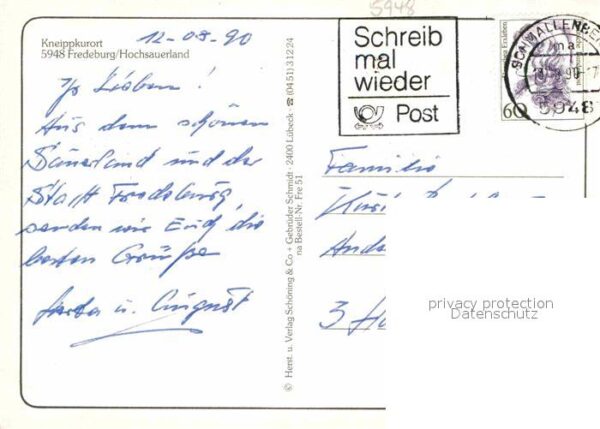 5948
Kneippkurort
5948 Fredeburg/Hochsauerland
12-08-90
Ihr Lieben!
Aus dem schönen
Sauerland und der
Stadt Fredeburg,
senden wir Euch die
besten Grüße
u. August
© Herst. u. Verlag Schöning & Co + Gebrüder Schmidt · 2400 Lübeck · ☎ (04 51) 3 12 24
na Bestell-Nr. Fre 51
Schreib
mal
wieder
Post
SCHMALLENBE
ma
90
5948
60
Familie
3
privacy protection
Datenschutz